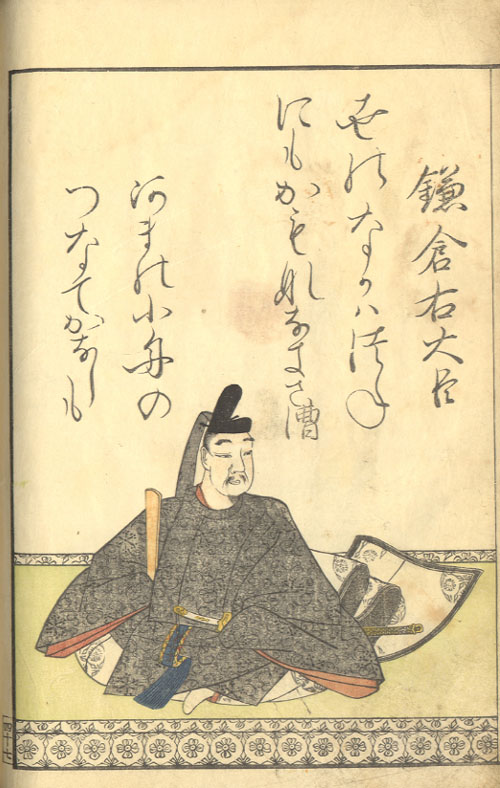 鎌倉右大臣
世のなかハつね
にもかもななきさ漕
あまの小舟の
つなてかなしも